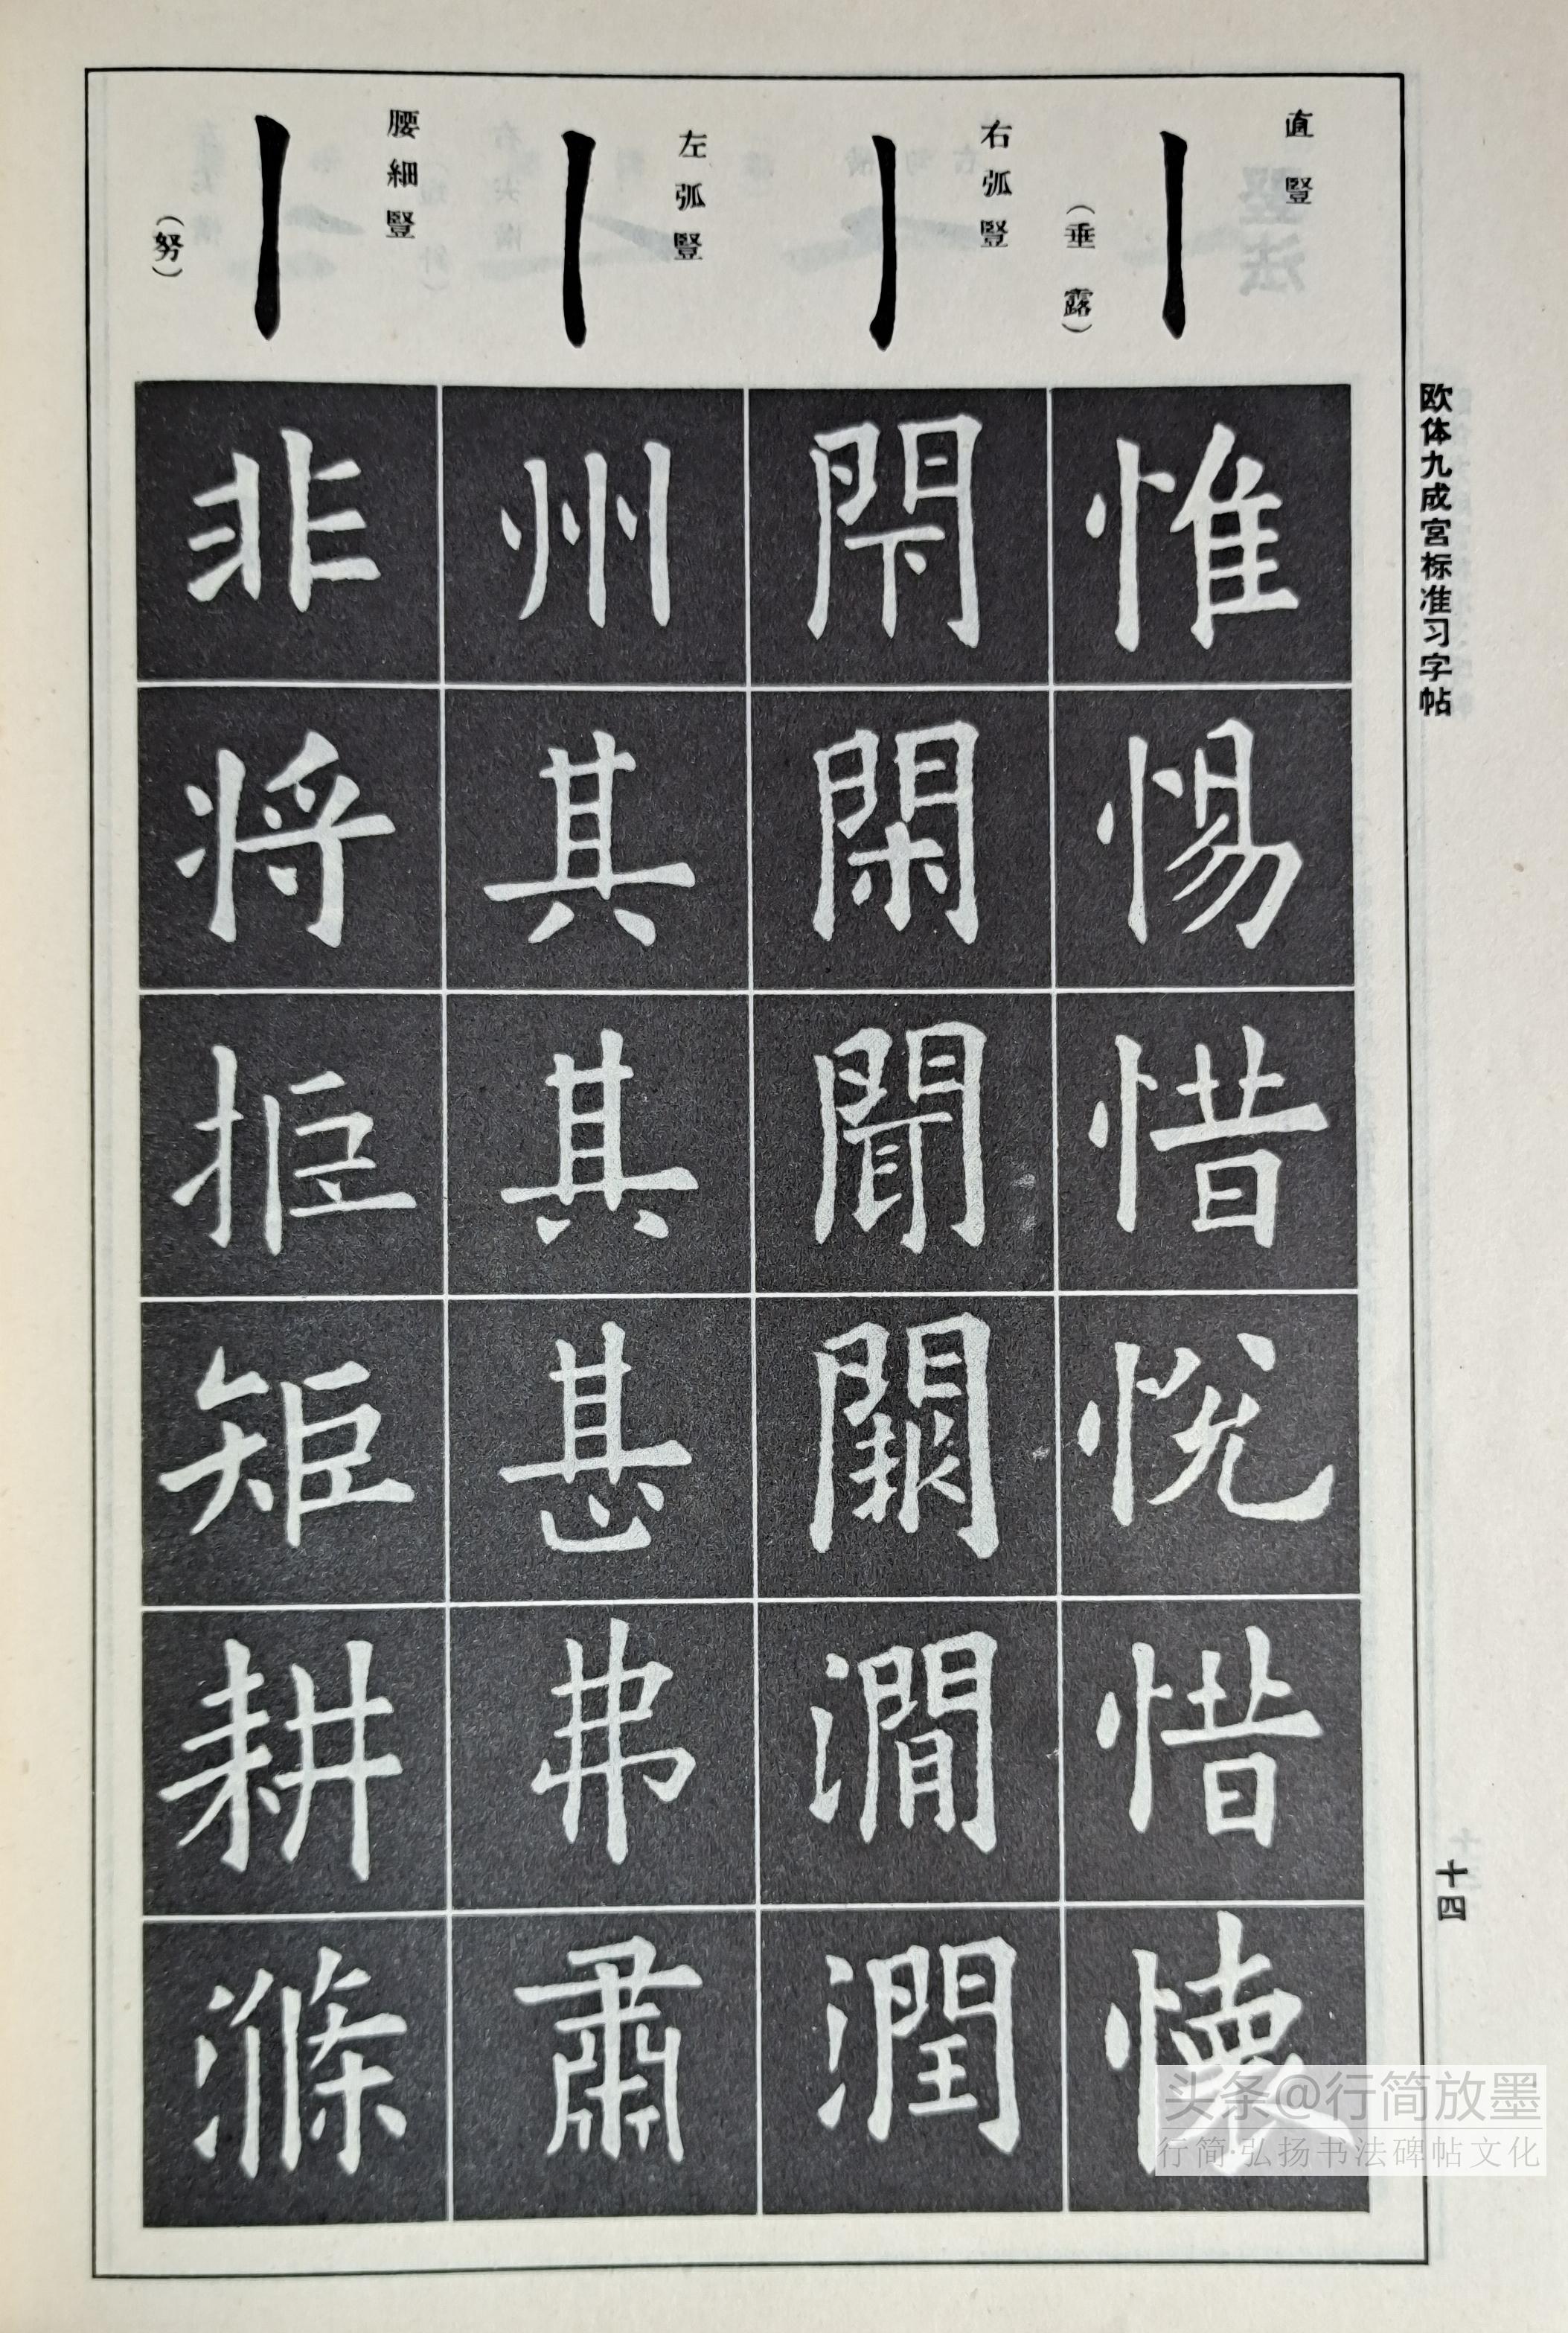 欧体九成宮标准习字帖
十四
直豎
（垂露）
惟惕惜悦惜懷
右弧豎
閇閑聞闕澗潤
左弧豎
州其其甚弗肅
腰細豎
（努）
非将拒矩耕滌
头条@行简放墨
行简·弘扬书法碑帖文化